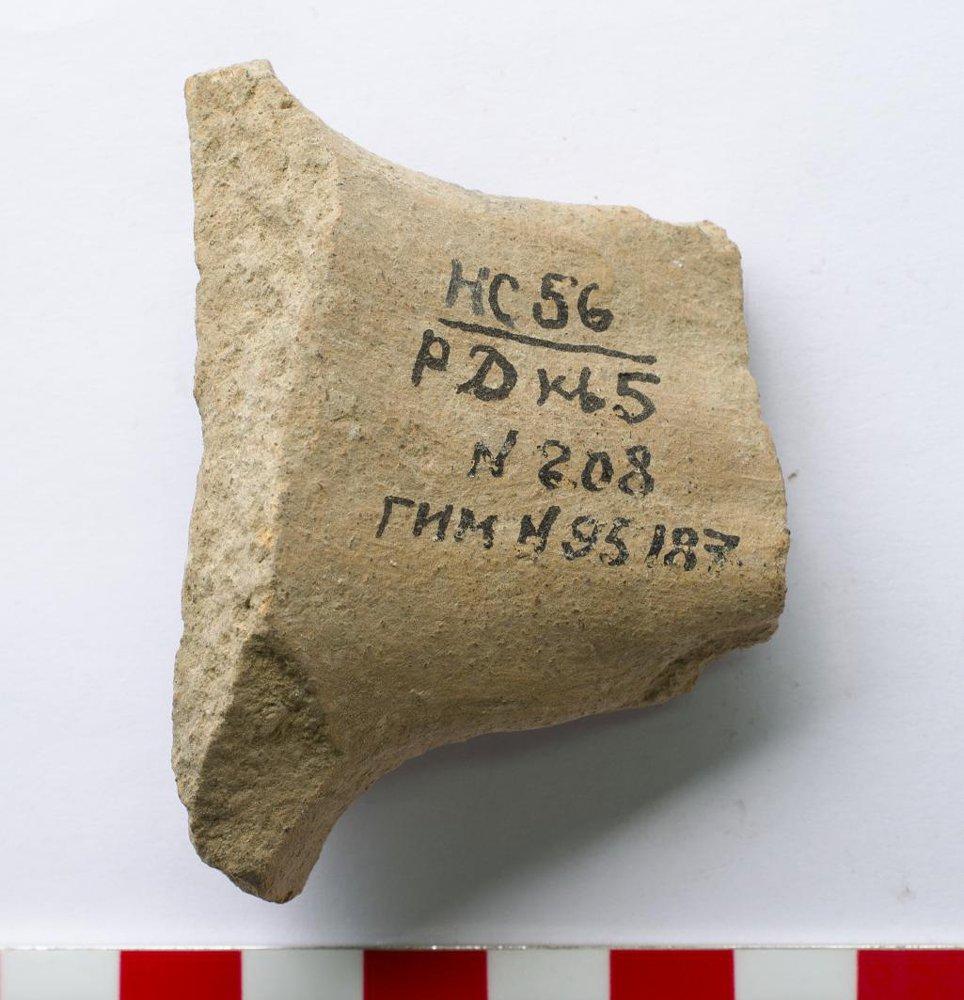 НС 56
РД кв 5
N 208
ГИМ N 95187